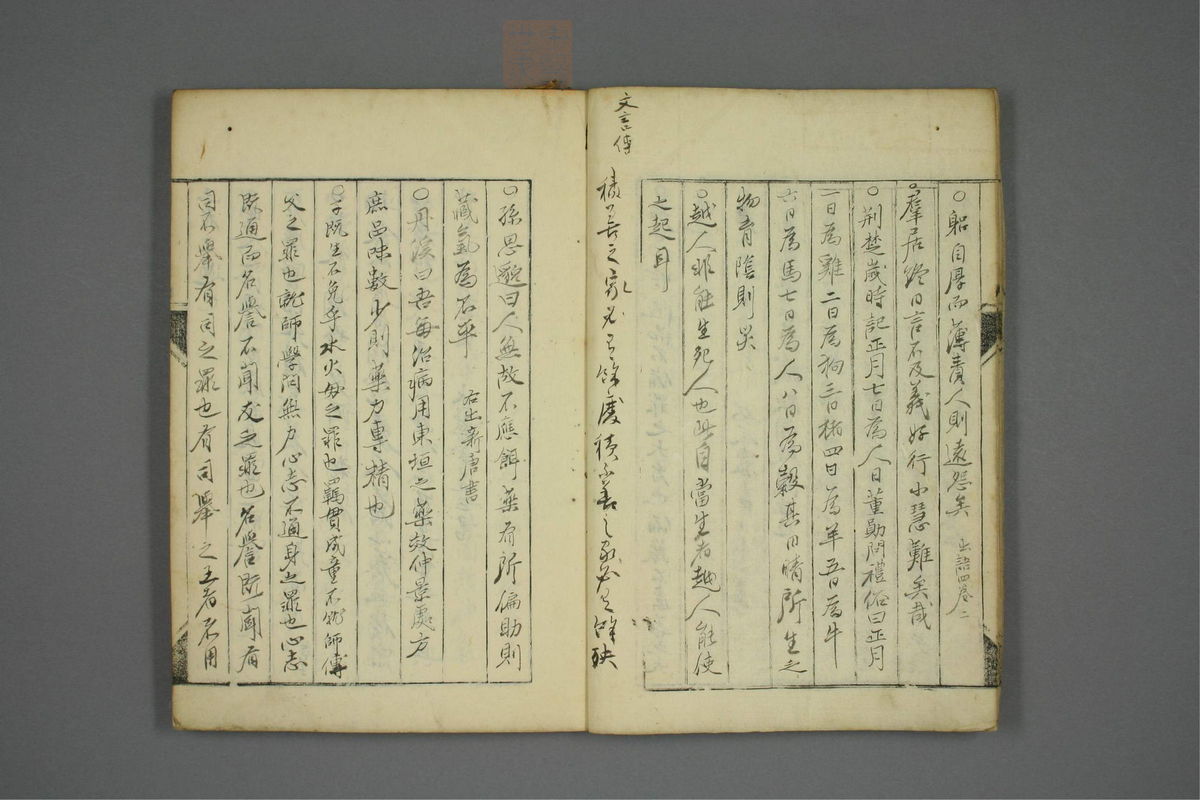 ○躬自厚而薄責人則遠怨矣 出語四卷二
○羣居終日言不及義好行小慧難矣哉
○荆楚歲時記正月七日為人日董勛問禮俗曰正月
一日為雞二日為狗三日猪四日為羊五日為牛
六日為馬七日為人八日為穀其日晴所生之
物育陰則災
○越人非能生死人也此自當生者越人能使
之起耳
文言傳
積善之家必有餘慶積不善之家必有餘殃
○孫思邈曰人無故不應餌藥有所偏助則
藏氣為不平 右出新唐書
○丹溪曰吾每治病用東垣之藥效仲景處方
庶品味數少則藥力專精也
○子既生不免乎水火母之罪也羈貫成童不就師傅
父之罪也就師學問無方心志不通身之罪也心志
既通而名譽不聞友之罪也名譽既聞有
司不舉有司之罪也有司舉之王者不用